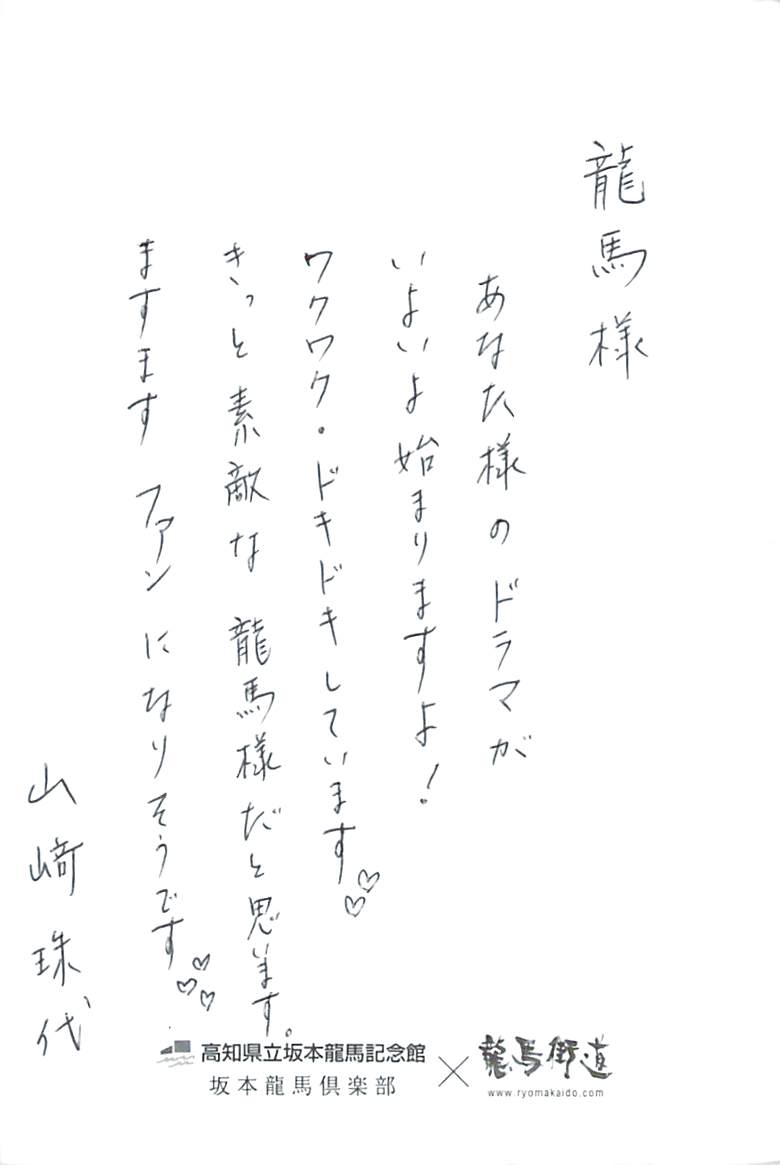 龍馬様
あなた様のドラマが
いよいよ始まりますよ！
ワクワク・ドキドキしています♡♡
きっと素敵な龍馬様だと思います。
ますますファンになりそうです♡♡♡
山﨑珠代
高知県立坂本龍馬記念館
坂本龍馬倶楽部
×
龍馬街道
www.ryomakaido.com